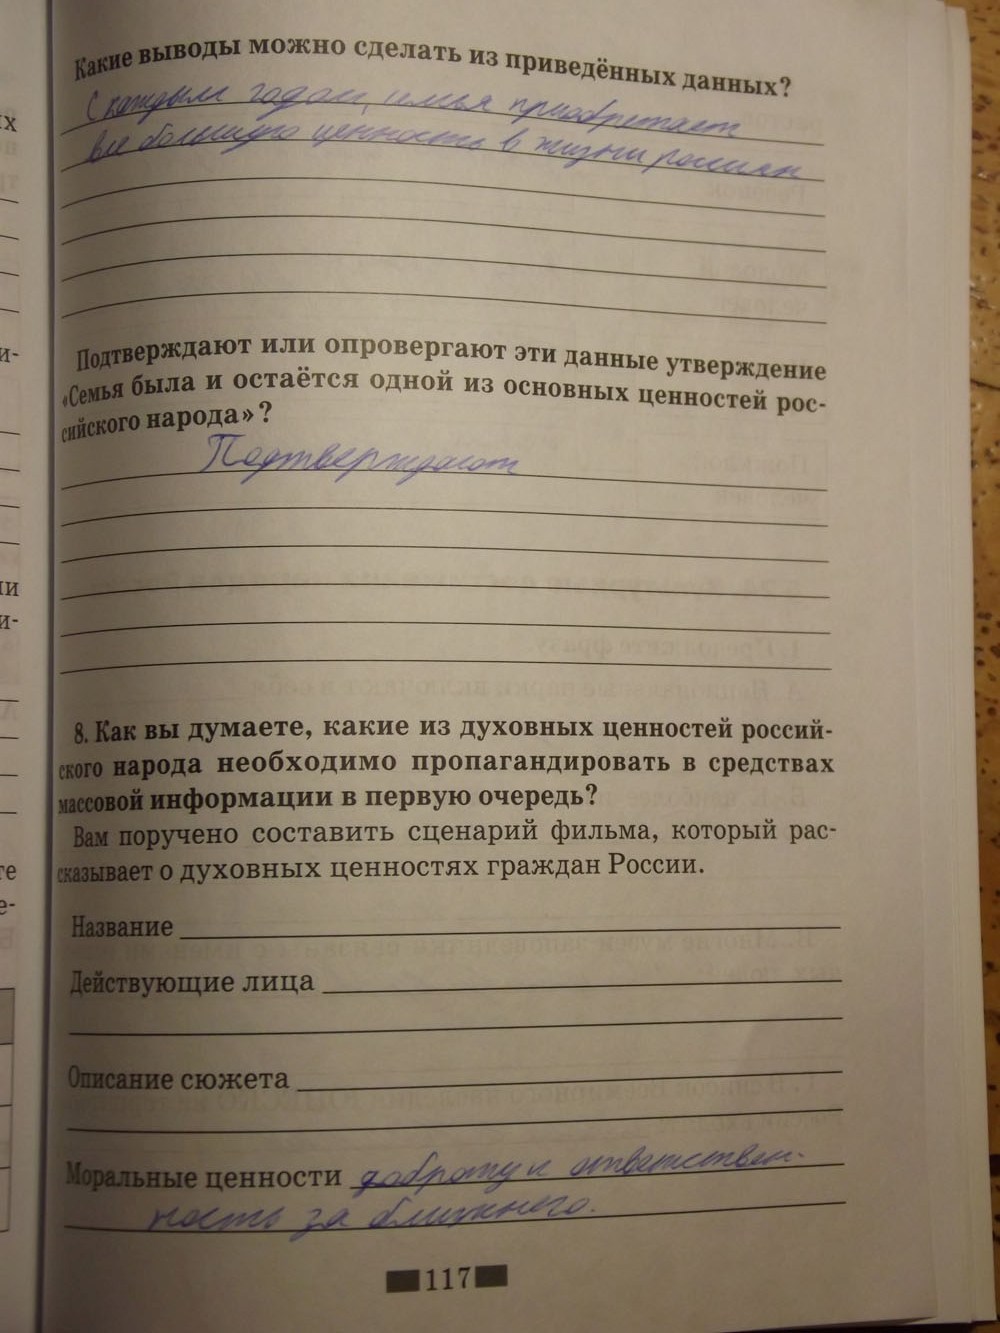 Какие выводы можно сделать из приведённых данных?
С каждым годом, семья приобретает
все большую ценность в жизни россиян
Подтверждают или опровергают эти данные утверждение
«Семья была и остаётся одной из основных ценностей рос-
сийского народа»?
Подтверждают
8. Как вы думаете, какие из духовных ценностей россий-
ского народа необходимо пропагандировать в средствах
массовой информации в первую очередь?
Вам поручено составить сценарий фильма, который рас-
сказывает о духовных ценностях граждан России.
Название
Действующие лица
Описание сюжета
Моральные ценности доброту и ответствен-
ность за ближнего.
117